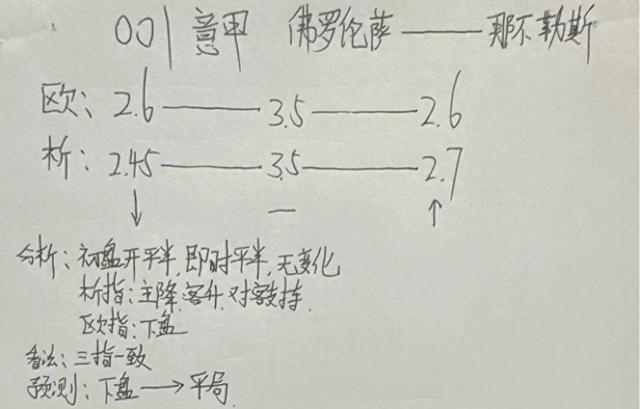 001 意甲 佛罗伦萨——那不勒斯
欧: 2.6——3.5——2.6
析: 2.45——3.5——2.7
↓ — ↑
分析: 初盘开平半, 即时平半, 无变化
析指: 主降, 客升, 对客支持.
欧指: 下盘
看法: 三指一致
预测: 下盘→平局.